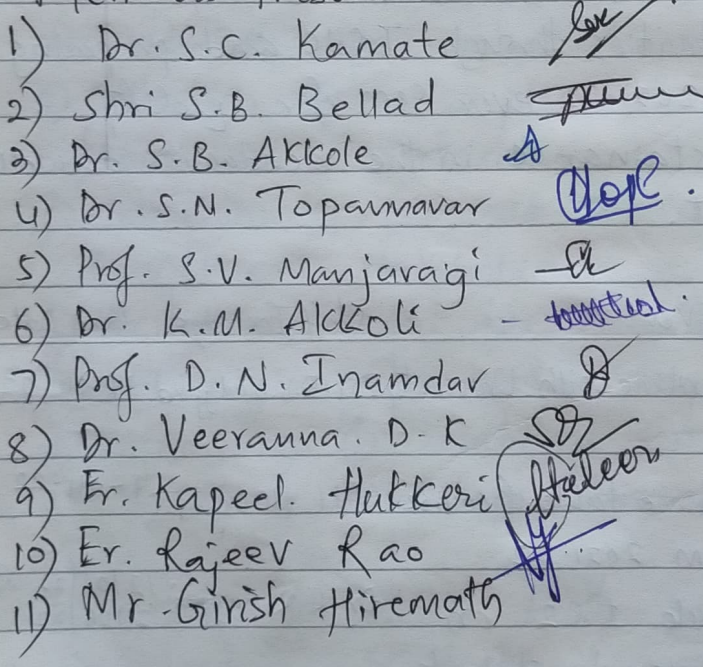 1) Dr. S.C. Kamate
2) Shri S.B. Bellad
3) Dr. S.B. Akkole
4) Dr. S.N. Topannavar
5) Prof. S.V. Manjaragi
6) Dr. K.M. Akkoli -
7) Prof. D.N. Inamdar
8) Dr. Veeranna. D-K
9) Er. Kapeel. Hukkeri
10) Er. Rajeev Rao
11) Mr. Girish Hiremath